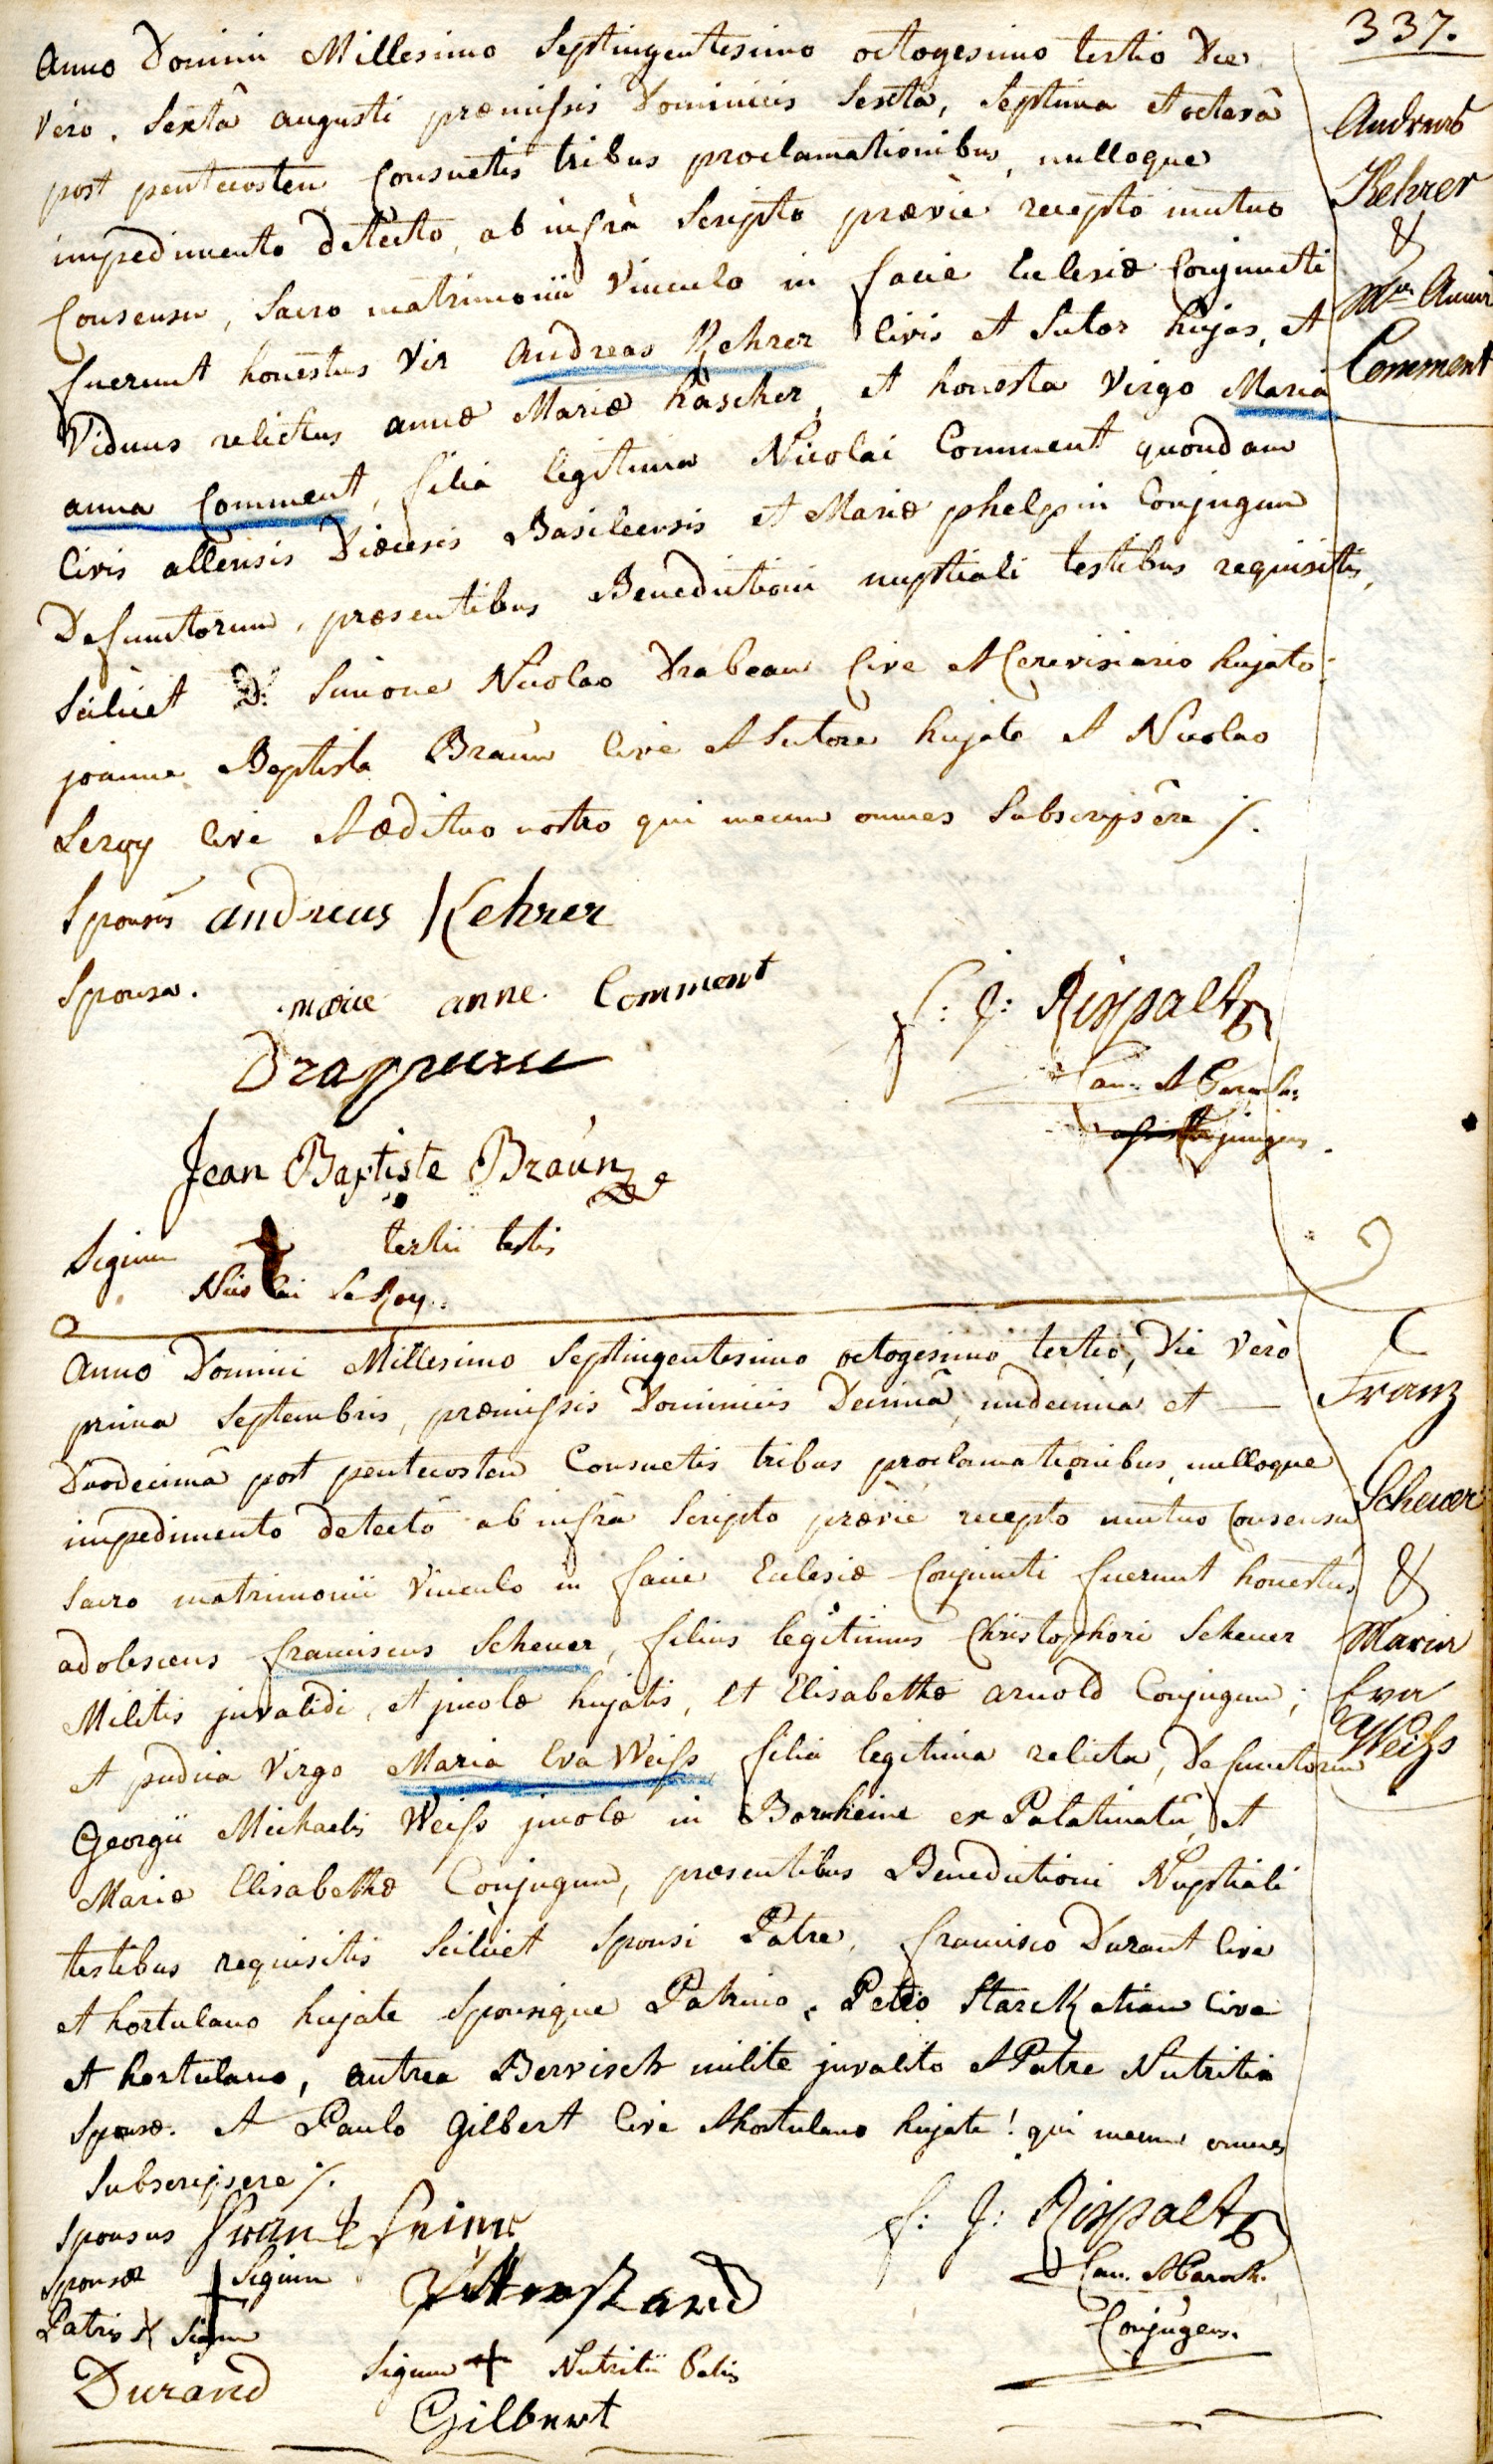 337.
Anno Domini Millesimo Septingentesimo octogesimo tertio Die
vero. Sextâ augusti præmissis Dominicis Sextâ, Septima et octavâ
post pentecosten Consuetis tribus proclamationibus, nulloque
impedimento detecto, ab infrà Scripto prævie recepto mutuo
Consensu, Sacro matrimonii Vinculo in facie Eclesiæ Conjuncti
fuerunt honestus Vir Andreas Kehrer Civis et Sutor hujas, et
Viduus relictus annæ Mariæ hascher, et honesta Virgo Maria
anna Comment, filia legitima Nicolai Comment quondam
Civis allensis Diœcesis Basileensis et Mariæ phelpin Conjugum
Defunctorum, præsentibus Benedictioni nuptiali testibus requisitis,
Scilicet D: Simone Nicolao Drabeau Cive et Cerevisiario hujate:
joanne Baptista Braun Cive et Sutore hujate et Nicolao
Leroy Cive et ædituo nostro qui mecum omnes Subscripsêre ./.
Andreas
Kehrer
&
Mª Anna
Comment
Sponsus andreas Kehrer
Sponsa. marie anne Comment
f: J: Rispalt
Can: et Paroch:
Conjungens.
Jean Baptiste Braun
Signum tertii testis
Nicolai LeRoy.
Anno Domini Millesimo Septingentesimo octogesimo tertio, Die verò
prima Septembris, præmissis Dominicis Decimâ, undecima et —
Duodecimâ post pentecosten Consuetis tribus proclamationibus, nulloque
impedimento detecto ab infrà Scripto prævie recepto mutuo Consensu
Sacro matrimonii Vinculo in facie Eclesiæ Conjuncti fuerunt honestus
adolescens franciscus Scheuer, filius legitimus Christophori Scheuer
Militis invalidi, et incolæ hujatis, et Elisabethæ arnold Conjugum;
et pudica Virgo Maria Eva Weiss, filia legitima relicta, Defunctorum
Georgii Michaelis Weiss incolæ in Bornheim ex Palatinatu, et
Mariæ Elisabethæ Conjugum, præsentibus Benedictioni Nuptiali
testibus requisitis Scilicet Sponsi Patre, francisco Durant Cive
et hortulano hujate Sponsique Patrino, Petro Starck etiam Cive
et hortulano, Andrea Bervisch milite invalito et Patre Nutritio
Sponsæ. et Paulo Gilbert Cive et hortulano hujate! qui mecum omnes
Subscripsere ./.
Franz
Scheuer
&
Maria
Eva
Weiss
Sponsus
Sponsæ Signum
Patris Signum
Durand
Signum Nutritii Patris
Gilbert
f: J: Rispalt
Can. et Paroch.
Conjugens.